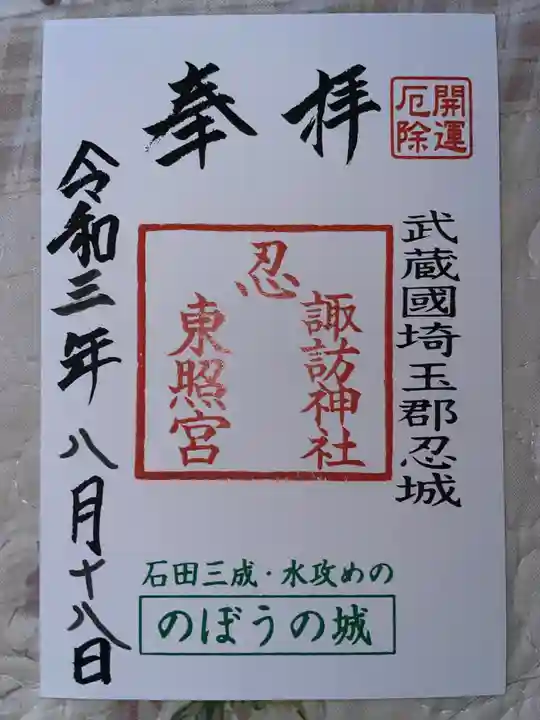 奉拝
開運
厄除
武蔵國埼玉郡忍城
忍
諏訪神社
東照宮
令和三年八月十八日
石田三成・水攻めの
のぼうの城